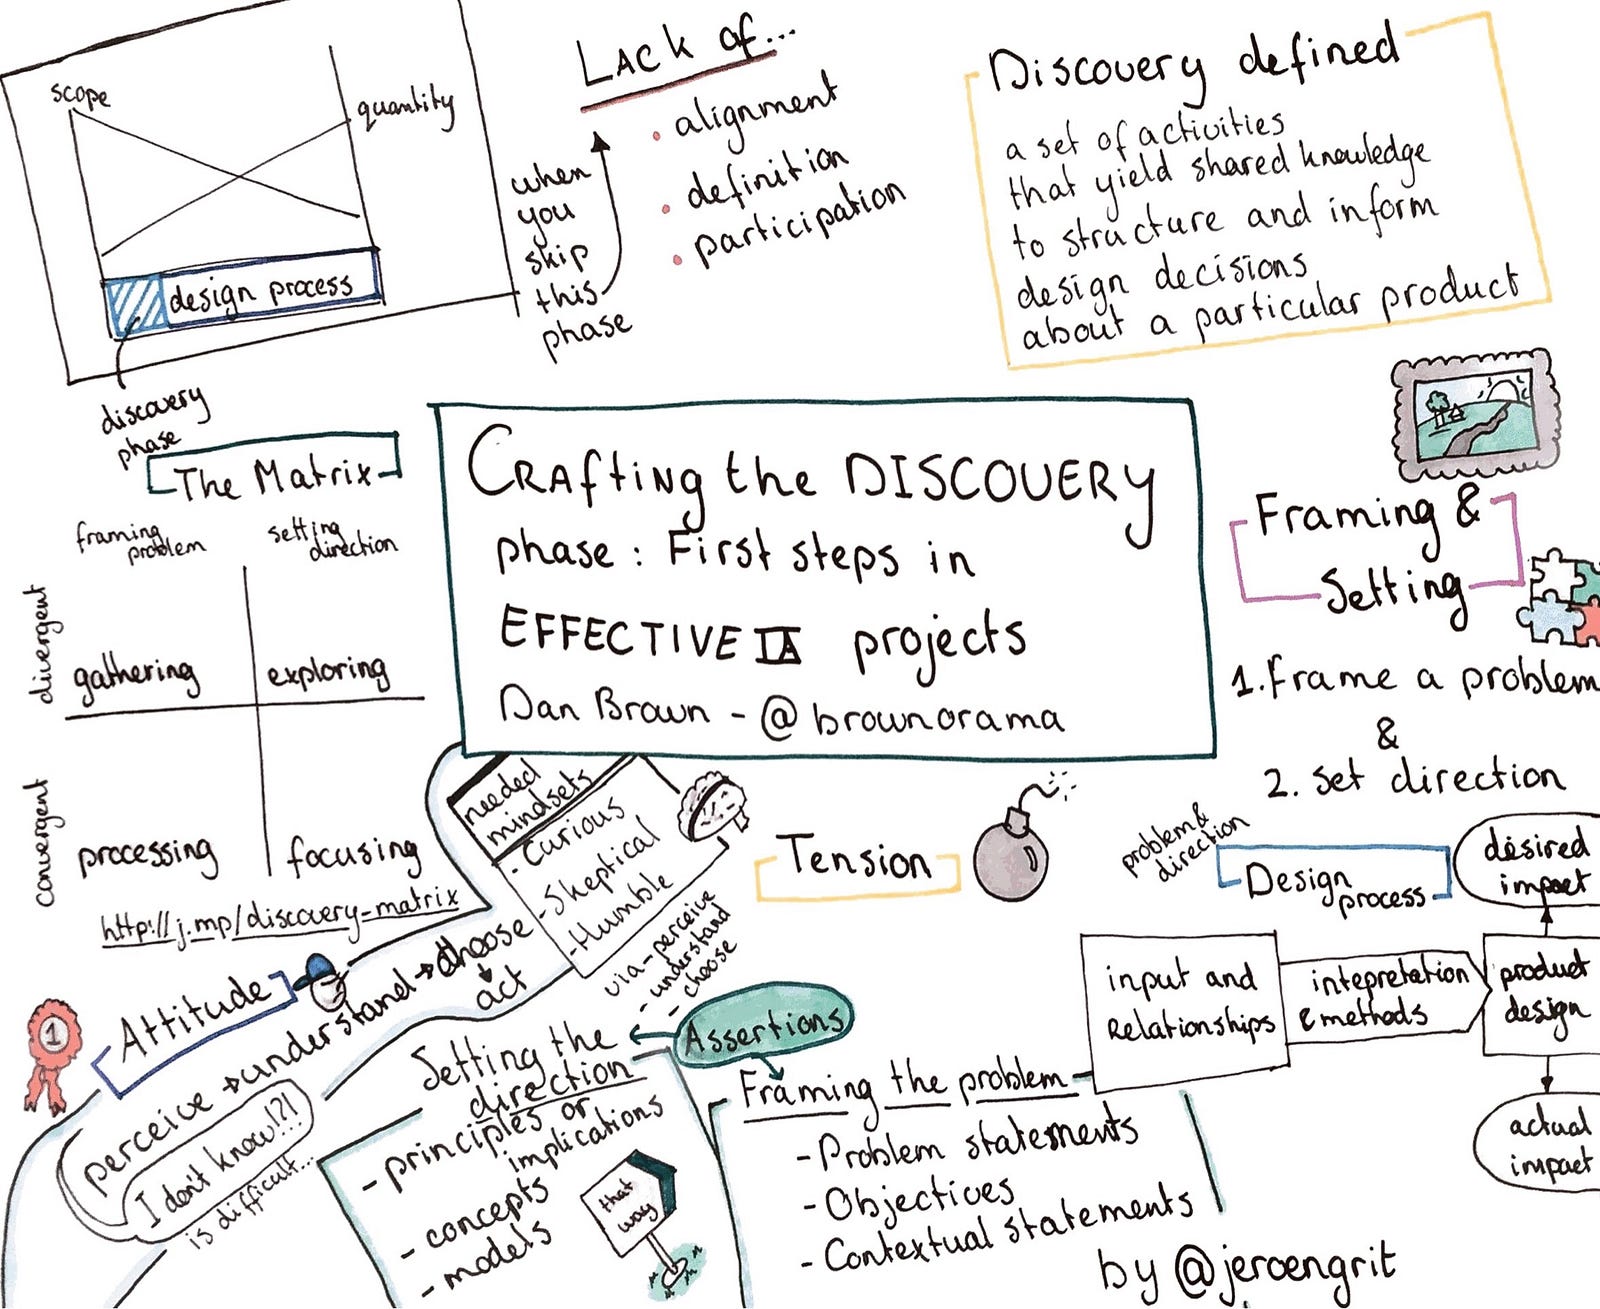 scope
quantity
design process
discovery
phase
Lack of...
• alignment
• definition
• participation
when
you
skip
this
phase
Discovery defined
a set of activities
that yield shared knowledge
to structure and inform
design decisions
about a particular product
The Matrix
framing
problem
setting
direction
divergent
gathering
exploring
convergent
processing
focusing
http://j.mp/discovery-matrix
CRAfting the DISCOVERY
phase: First steps in
EFFECTIVE IA projects
Dan Brown - @brownorama
Framing &
Setting
1. Frame a problem
&
2. set direction
needed
mindsets
- Curious
- Skeptical
- Humble
via - perceive
- understand
- choose
Tension
problem &
direction
Design
process
desired
impact
input and
Relationships
intepretation
& methods
product
design
actual
impact
Attitude
1
perceive → understand → choose
act
I don't know!?!
is difficult...
Assertions
Setting the
direction
- principles or
implications
- concepts
- models
that
way
Framing the problem
- Problem statements
- Objectives
- Contextual statements
by @jeroengrit